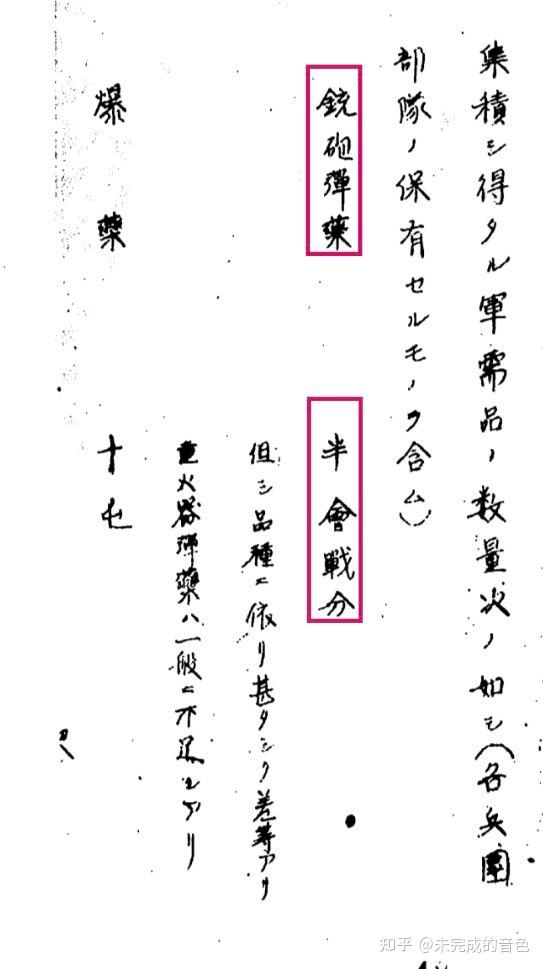 集積シ得タル軍需品ノ数量次ノ如シ(各兵團
部隊ノ保有セルモノヲ含ム)
銃砲彈藥 半會戰分
但シ品種ニ依リ甚タシク差等アリ
重火器彈藥ハ一般ニ不足シアリ
爆藥 十屯
知乎 @未完成的音色